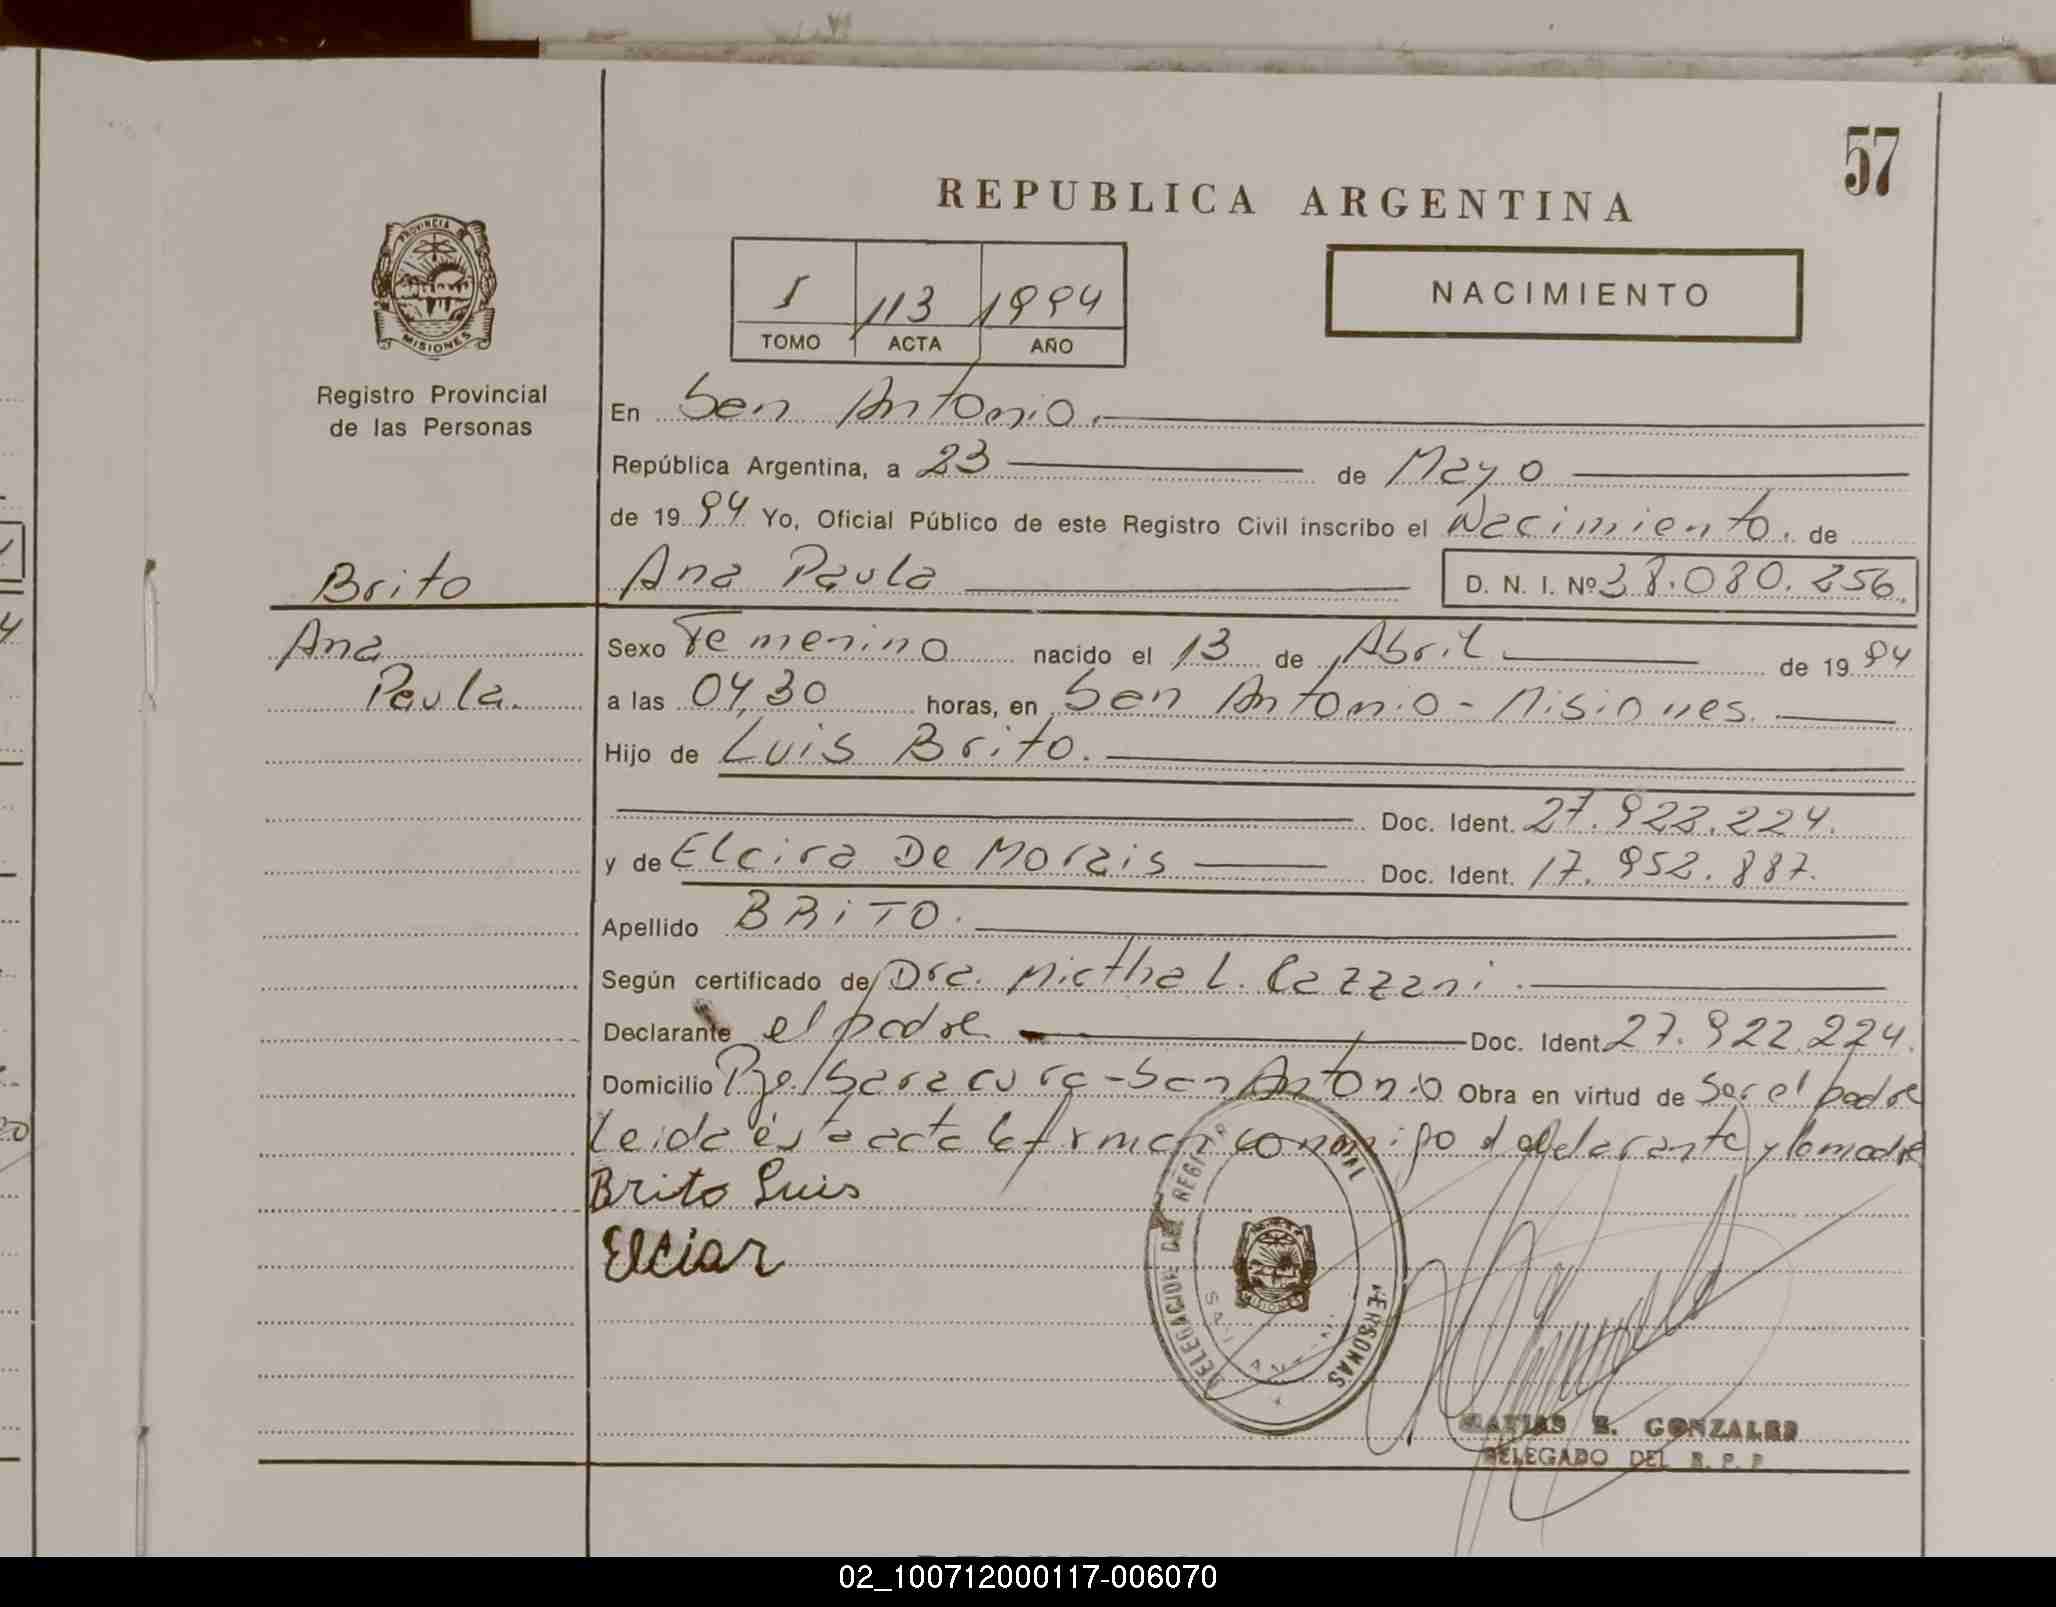 57
REPUBLICA ARGENTINA
PROVINCIA DE
MISIONES
Registro Provincial
de las Personas
I 113 1994
TOMO ACTA AÑO
NACIMIENTO
En San Antonio.
República Argentina, a 23 de Mayo
de 1994 Yo, Oficial Público de este Registro Civil inscribo el Nacimiento. de
Brito
Ana Paula D. N. I. Nº 38.080.256.
Ana
Paula.
Sexo Femenino nacido el 13 de Abril de 1994
a las 04,30 horas, en San Antonio - Misiones.
Hijo de Luis Brito.
Doc. Ident. 27.922.224.
y de Elcira De Morais Doc. Ident. 17.952.887.
Apellido BRiTO.
Según certificado de Dra. Mirtha L. Cazzani.
Declarante el padre Doc. Ident. 27.922.224.
Domicilio Pje. Saracura - San Antonio Obra en virtud de Ser el padre
Leida ésta acta la firman conmigo el declarante y la madre
Brito Luis
Elciar
DELEGACION DE REGIST PERSONAS
MISIONES
MATIAS E. GONZALES
DELEGADO DEL R. P. P
02_100712000117-006070